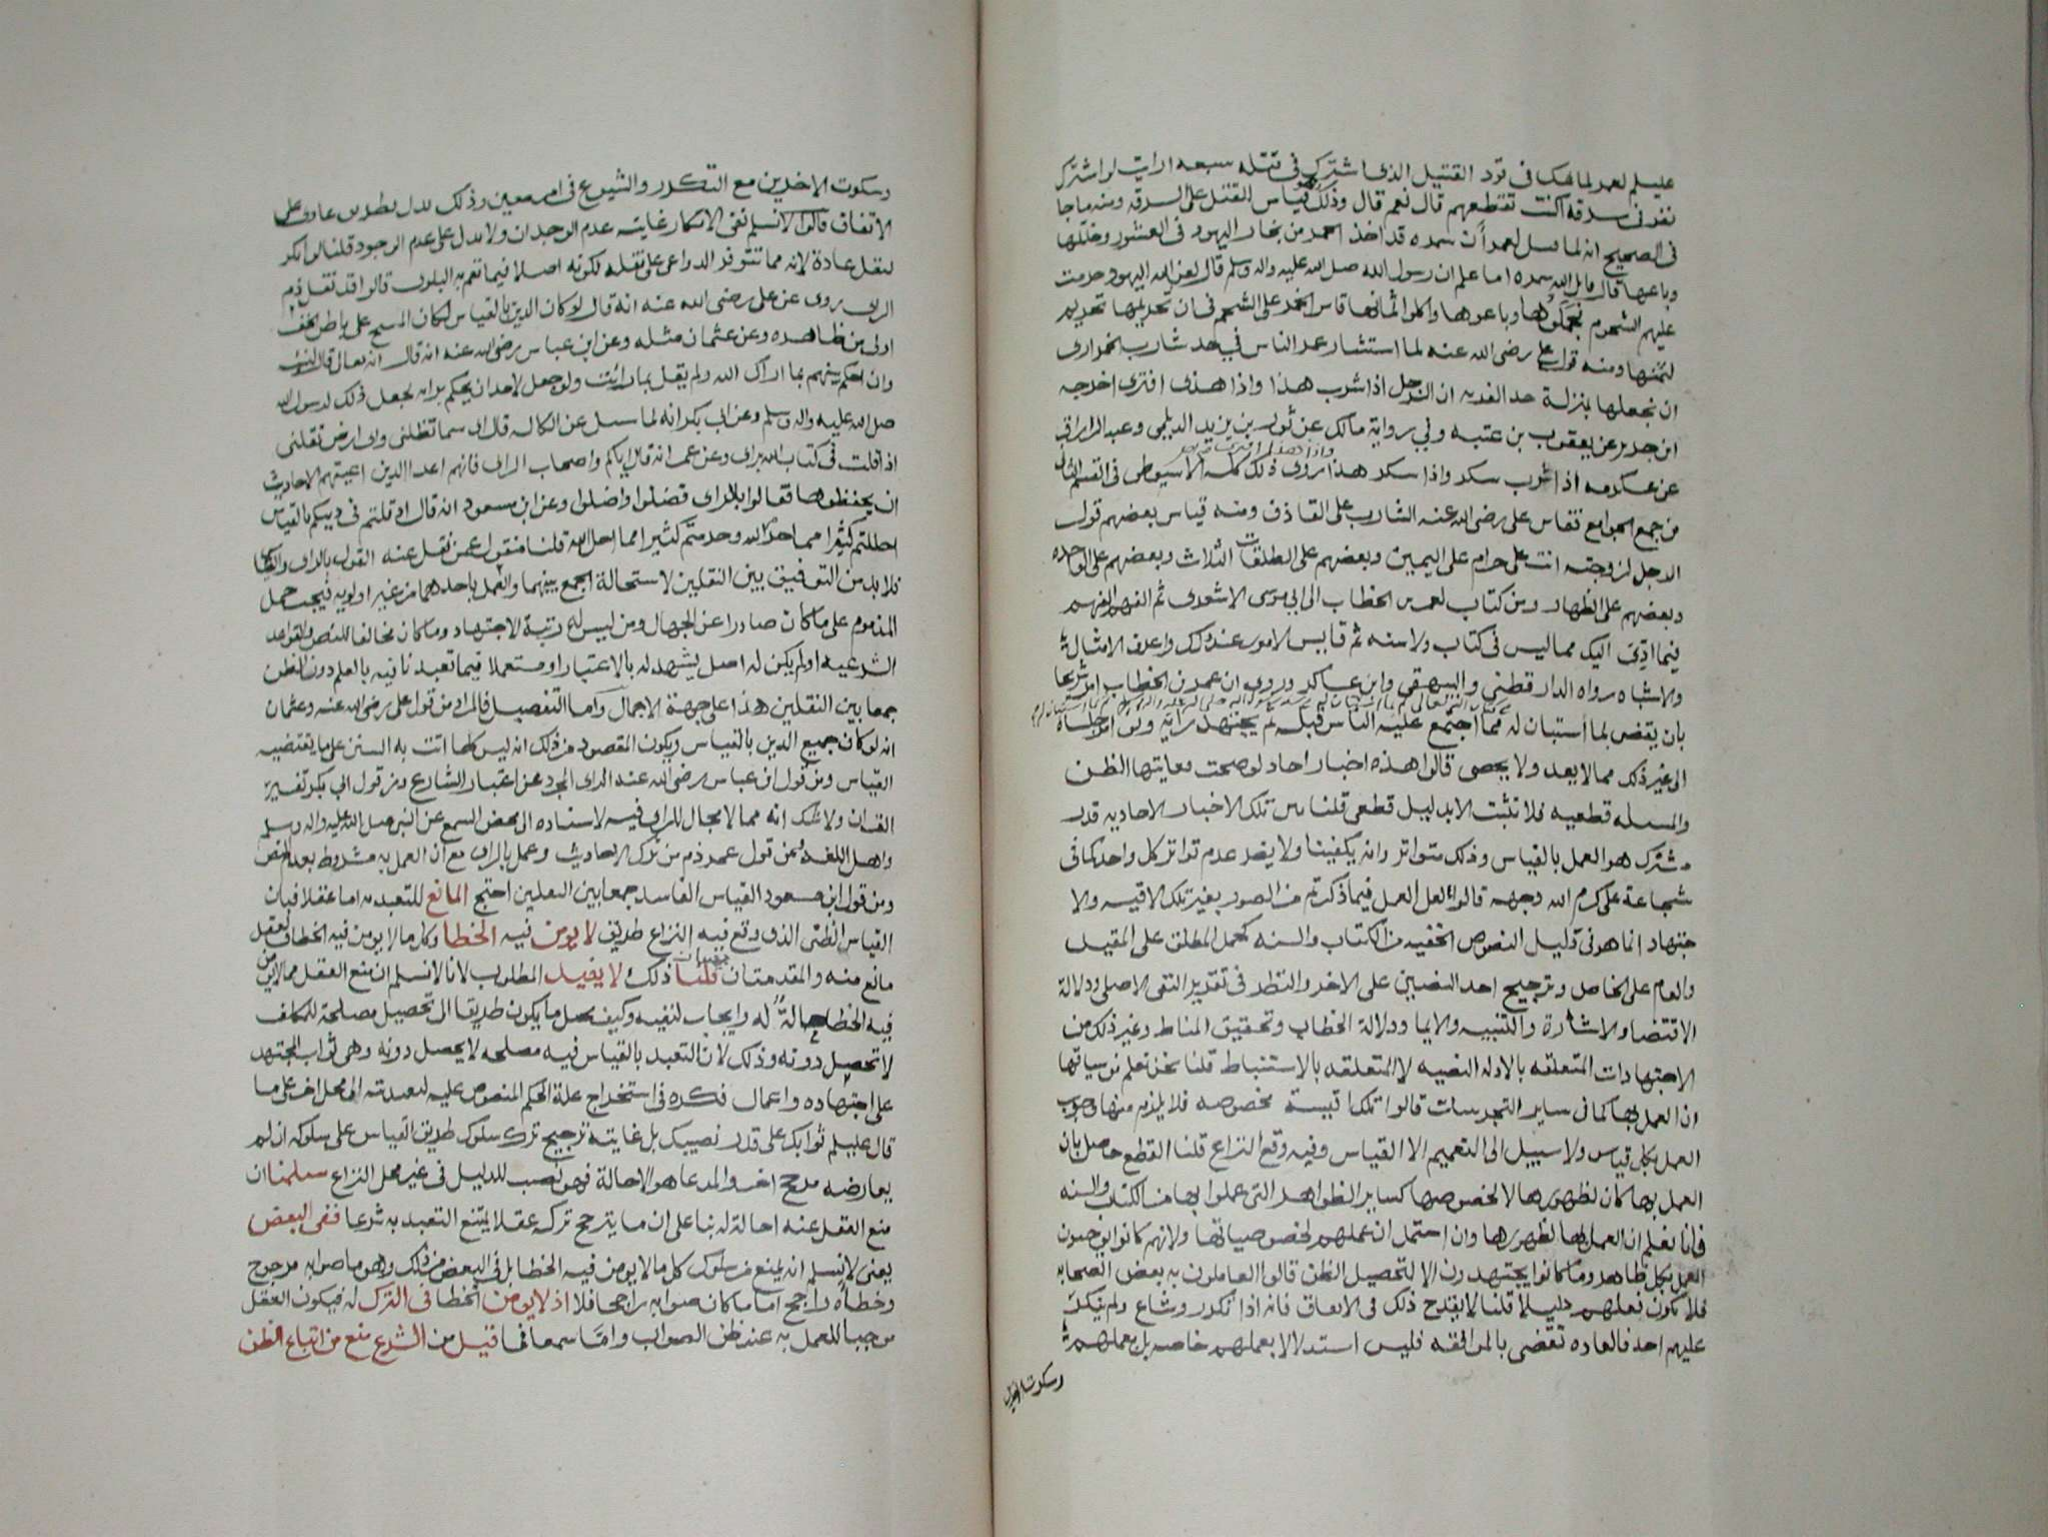 عليلم لعمر لما شك فى قود القتيل الذى اشترك فى قتله سبعه ارايت لو اشترك
نفر فى سرقه اكنت تقطعهم قال نعم قال وذلك وهو قياس للقتل على السرقه ومنه ما جا
فى الصحيح انه لما قيل لعمر ان سمره قد اخذ الخمر من تجار اليهود فى العشور وخللها
وباعها قال قاتل الله سمره اما علم ان رسول الله صلى الله عليه واله وسلم قال لعن الله اليهود حرمت
عليهم الشحوم فجملوها وباعوها واكلوا اثمانها قاس الخمر على الشحم فى ان تحريمها تحريم
لثمنها ومنه قول على رضى الله عنه لما استشار عمر الناس في حد شارب الخمر ارى
ان نجعلها بمنزلة حد الفريه ان الرجل اذا شرب هذا واذا هذى افترى اخرجه
ابن جرير عن يعقوب بن عتبه وفي رواية مالك عن ثور بن يزيد الديلمى وعبد الرزاق
عن عكرمه اذا شرب سكر واذا سكر هذا روى ذلك كله الاسيوطى فى القسم الثانى
من جمع الجوامع فقاس على رضى الله عنه الشارب على القاذف ومنه قياس بعضهم قول
الرجل لزوجته انت على حرام على اليمين وبعضهم على الطلقات الثلاث وبعضهم على الواحده
وبعضهم على الظهار ومن كتاب لعمر بن الخطاب الى ابى موسى الاشعرى ثم الفهم الفهم
فيما ادى اليك مما ليس فى كتاب ولا سنه ثم قايس الامور عند ذلك واعرف الامثال
والاشباه رواه الدار قطنى والبيهقى وابن عساكر وروى ان عمر بن الخطاب امر شريحا
بان يقضى بما استبان له مما اجتمع عليه الناس قبله ثم يجتهد رايه
الى غير ذلك مما لا يعد ولا يحصى قالوا هذه اخبار احاد لو صحت فغايتها الظن
والمسله قطعيه فلا تثبت الا بدليل قطعى قلنا بين تلك الاخبار الاحاديه قدر
مشترك هو العمل بالقياس وذلك متواتر وانه يكفينا ولا يضر عدم تواتر كل واحد كما فى
شجاعة على كرم الله وجهه قالوا لعل العمل فيما ذكرتم من الصور بغير تلك الاقيسه ولا
جتهاد انما هو فى دليل النصوص الخفيه من الكتاب والسنه كحمل المطلق على المقيد
والعام على الخاص وترجيح احد النصين على الاخر والنظر فى تقرير النفى الاصلى ودلالة
الاقتضا والاشارة والتنبيه والايما ودلالة الخطاب وتحقيق المناط وغير ذلك من
الاجتهادات المتعلقه بالادله النصيه لا المتعلقه بالاستنباط قلنا نحن نعلم من سياقها
ان العمل بها كما فى ساير التجربيات قالوا تلك اقيسة مخصوصه فلا يلزم منها وجوب
العمل بكل قياس ولا سبيل الى التعميم الا القياس وفيه وقع النزاع قلنا القطع حاصل بان
العمل بها كان لظهورها لا لخصوصها كساير الظواهر التى عملوا بها من الكتاب والسنه
فانا نعلم ان العمل بها لظهورها وان احتمل ان عملهم لخصوصياتها ولانهم كانوا يوجبون
العمل بكل ظاهر وما كانوا يجتهدون الا لتحصيل الظن قالوا العاملون به بعض الصحابه
فلا يكون فعلهم دليلا قلنا لا يقدح ذلك فى الاتفاق فانه اذا تكرر وشاع ولم ينكر
عليهم احد فالعاده تقضى بالموافقه فليس استدلالا بعملهم خاصه بل بعملهم
وسكوت الاخرين
وسكوت الاخرين مع التكرر والشيوع فى امر معين وذلك يدل بطريق عادى على
الاتفاق قالوا لا نسلم نفى الانكار غايته عدم الوجدان ولا يدل على عدم الوجود قلنا لو انكر
لنقل عادة لانه مما تتوفر الدواعى على نقله لكونه اصلا فيما تعم به البلوى قالوا قد نقل ذم
الراى روى عن على رضى الله عنه انه قال لو كان الدين بالقياس لكان المسح على باطن الخف
اولى من ظاهره وعن عثمان مثله وعن ابن عباس رضى الله عنه انه قال ان الله تعالى قال لنبيه
وان احكم بينهم بما اراك الله ولم يقل بما رائت ولو جعل لاحد ان يحكم برايه لجعل ذلك لرسول الله
صلى الله عليه واله وسلم وعن ابى بكر انه لما سئل عن الكلاله قال اى سما تظلنى واى ارض تقلنى
اذا قلت فى كتاب الله براى وعن عمر انه قال اياكم واصحاب الراى فانهم اعدا الدين اعيتهم الاحاديث
ان يحفظوها فقالوا بالراى فضلوا واضلوا وعن ابن مسعود انه قال اذ قلتم فى دينكم بالقياس
احللتم كثيرا مما حرم الله وحرمتم كثيرا مما احل الله قلنا منقول عمن نقل عنه القول بالراى والقياس
فلا بد من التوفيق بين النقلين لاستحالة الجمع بينهما والعمل باحدهما من غير اولويه فيجب حمل
المذموم على ما كان صادرا عن الجهال ومن ليس له رتبة الاجتهاد وما كان مخالفا للنص والقواعد
الشرعيه او لم يكن له اصل يشهد له بالاعتبار او مستعملا فيما تعبدنا فيه بالعلم دون الظن
جمعا بين النقلين هذا على جهة الاجمال واما التفصيل فالمراد من قول على رضى الله عنه وعثمان
انه لو كان جميع الدين بالقياس ويكون المقصود من ذلك انه ليس كلما اتت به السنن على ما يقتضيه
القياس ومن قول ابن عباس رضى الله عنه الراى المجرد عن اعتبار الشارع ومن قول ابى بكر تفسير
القران ولا شك انه مما لا مجال للراى فيه لاستناده الى محض السمع عن النبى صلى الله عليه واله وسلم
واهل اللغه ومن قول عمر ذم من ترك الاحاديث وعمل بالراى مع ان العمل به مشروط بعدم النص
ومن قول ابن مسعود القياس الفاسد جمعا بين النقلين احتج المانع للتعبد به اما عقلا فبان
القياس الظنى الذى وقع فيه النزاع طريق لا يومن فيه الخطا وكل ما لا يومن فيه الخطا فالعقل
مانع منه والمقدمتان قلنا ذلك لا يفيد المطلوب لانا لا نسلم ان منع العقل مما لا يومن
فيه الخطا احالة له وايجاب لنفيه وكيف يحيل ما يكون طريقا الى تحصيل مصلحة للمكلف
لا تحصل دونه وذلك لان التعبد بالقياس فيه مصلحه لا يحصل دونه وهى ثواب المجتهد
على اجتهاده واعمال فكره فى استخراج علة الحكم المنصوص عليه لتعديته الى محل اخر على ما
قال عليلم ثوابك على قدر نصبك بل غايته ترجيح ترك سلوك طريق القياس على سلوكه ان لم
يعارضه مرجح اخر والمدعا هو الاحالة فهو نصب للدليل فى غير محل النزاع سلمنا ان
منع العقل عنه احالة له بنا على ان ما يترجح تركه عقلا يمتنع التعبد به شرعا ففى البعض
يعنى لا نسلم انه يمنع من سلوك كل ما لا يومن فيه الخطا بل فى البعض من ذلك وهو ما صوابه مرجوح
وخطاه راجح اما ما كان صوابه راجحا فلا اذ لا يومن الخطا فى الترك له فيكون العقل
موجبا للعمل به عند ظن الصواب واما سمعا فما قيل من الشرع منع من اتباع الظن